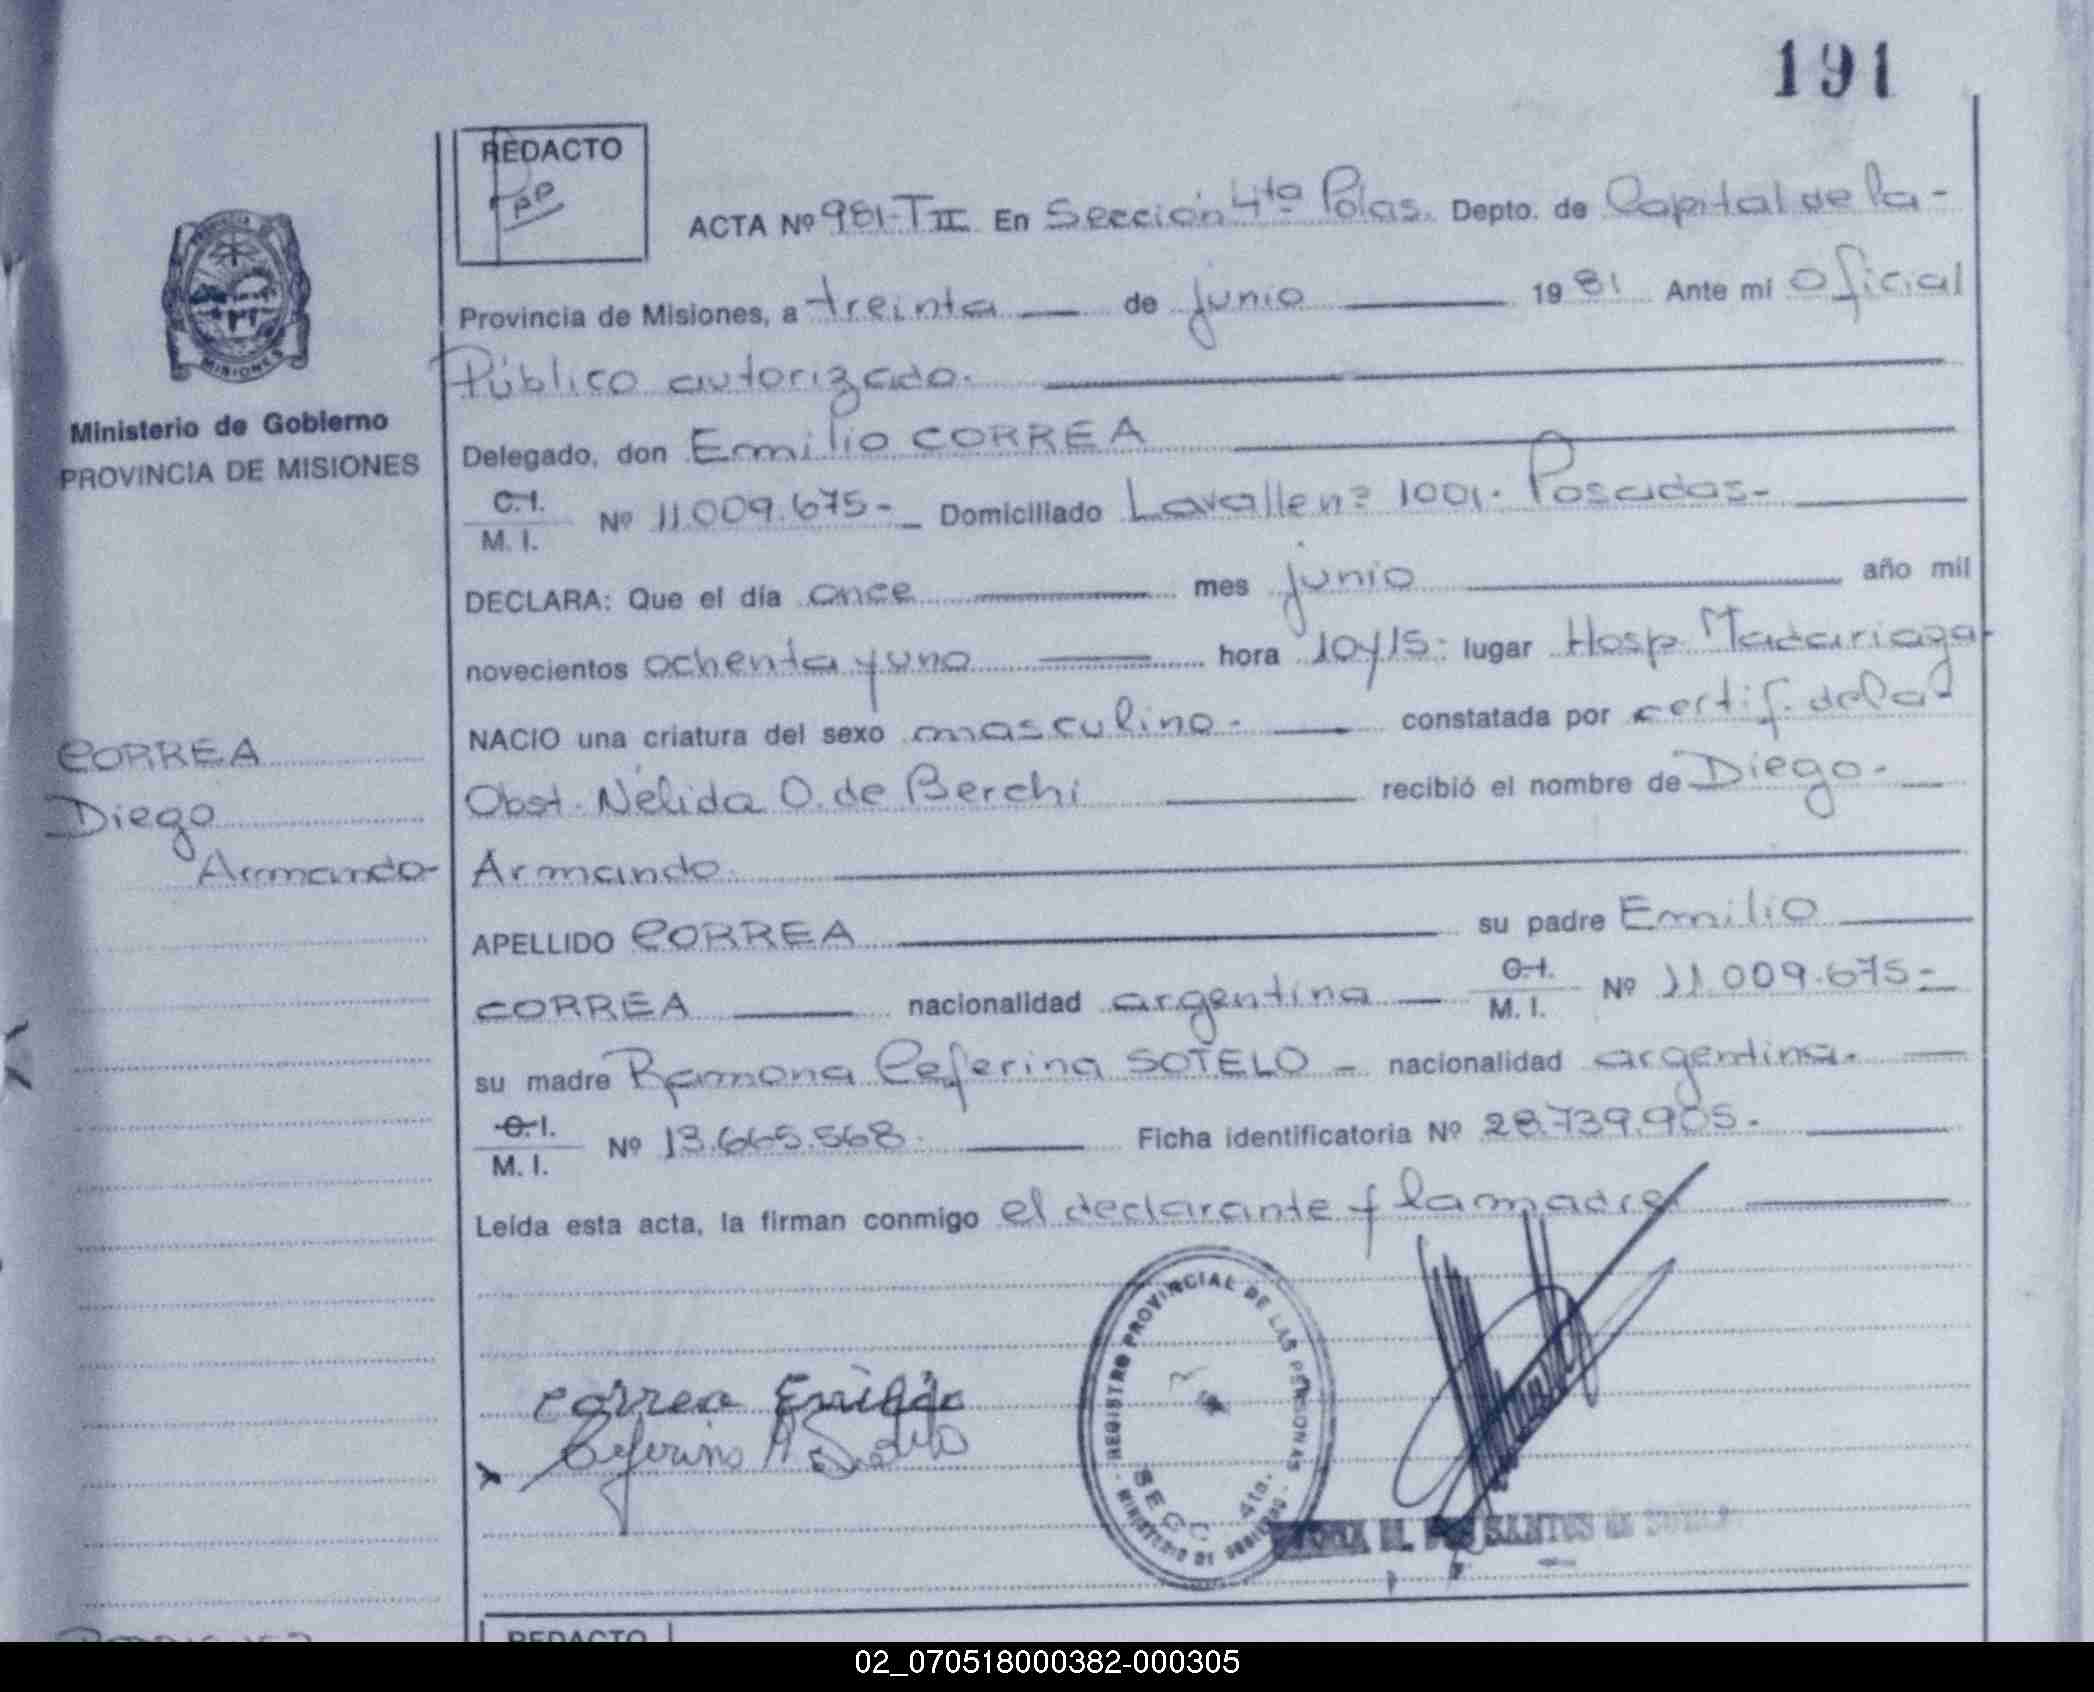 191
REDACTO
PP
ACTA Nº 981-TII En Sección 4ta Pdas. Depto. de Capital de la-
Provincia de Misiones, a treinta — de junio — 1981 Ante mi Oficial
Público autorizado.
Delegado, don Emilio CORREA
C.I. / M. I. Nº 11.009.675- Domiciliado Lavalle nº 1001. Posadas-
DECLARA: Que el día once mes junio año mil
novecientos ochenta y uno hora 10y15- lugar Hosp. Madariaga-
NACIO una criatura del sexo masculino- constatada por certif. de la-
Obst. Nélida O. de Berchi recibió el nombre de Diego-
Armando
APELLIDO CORREA su padre Emilio
CORREA nacionalidad argentina C.I. / M. I. Nº 11.009.675-
su madre Ramona Ceferina SOTELO - nacionalidad argentina-
C.I. / M. I. Nº 13.665.568- Ficha identificatoria Nº 28.739.905-
Leída esta acta, la firman conmigo el declarante y la madre
Correa Emilio
Ceferina Sotelo
REGISTRO PROVINCIAL DE LAS PERSONAS
SECC. 4ta.
MINISTERIO DE GOBIERNO
SANTOS de
MISIONES
Ministerio de Gobierno
PROVINCIA DE MISIONES
CORREA
Diego
Armando-
REDACTO
02_070518000382-000305